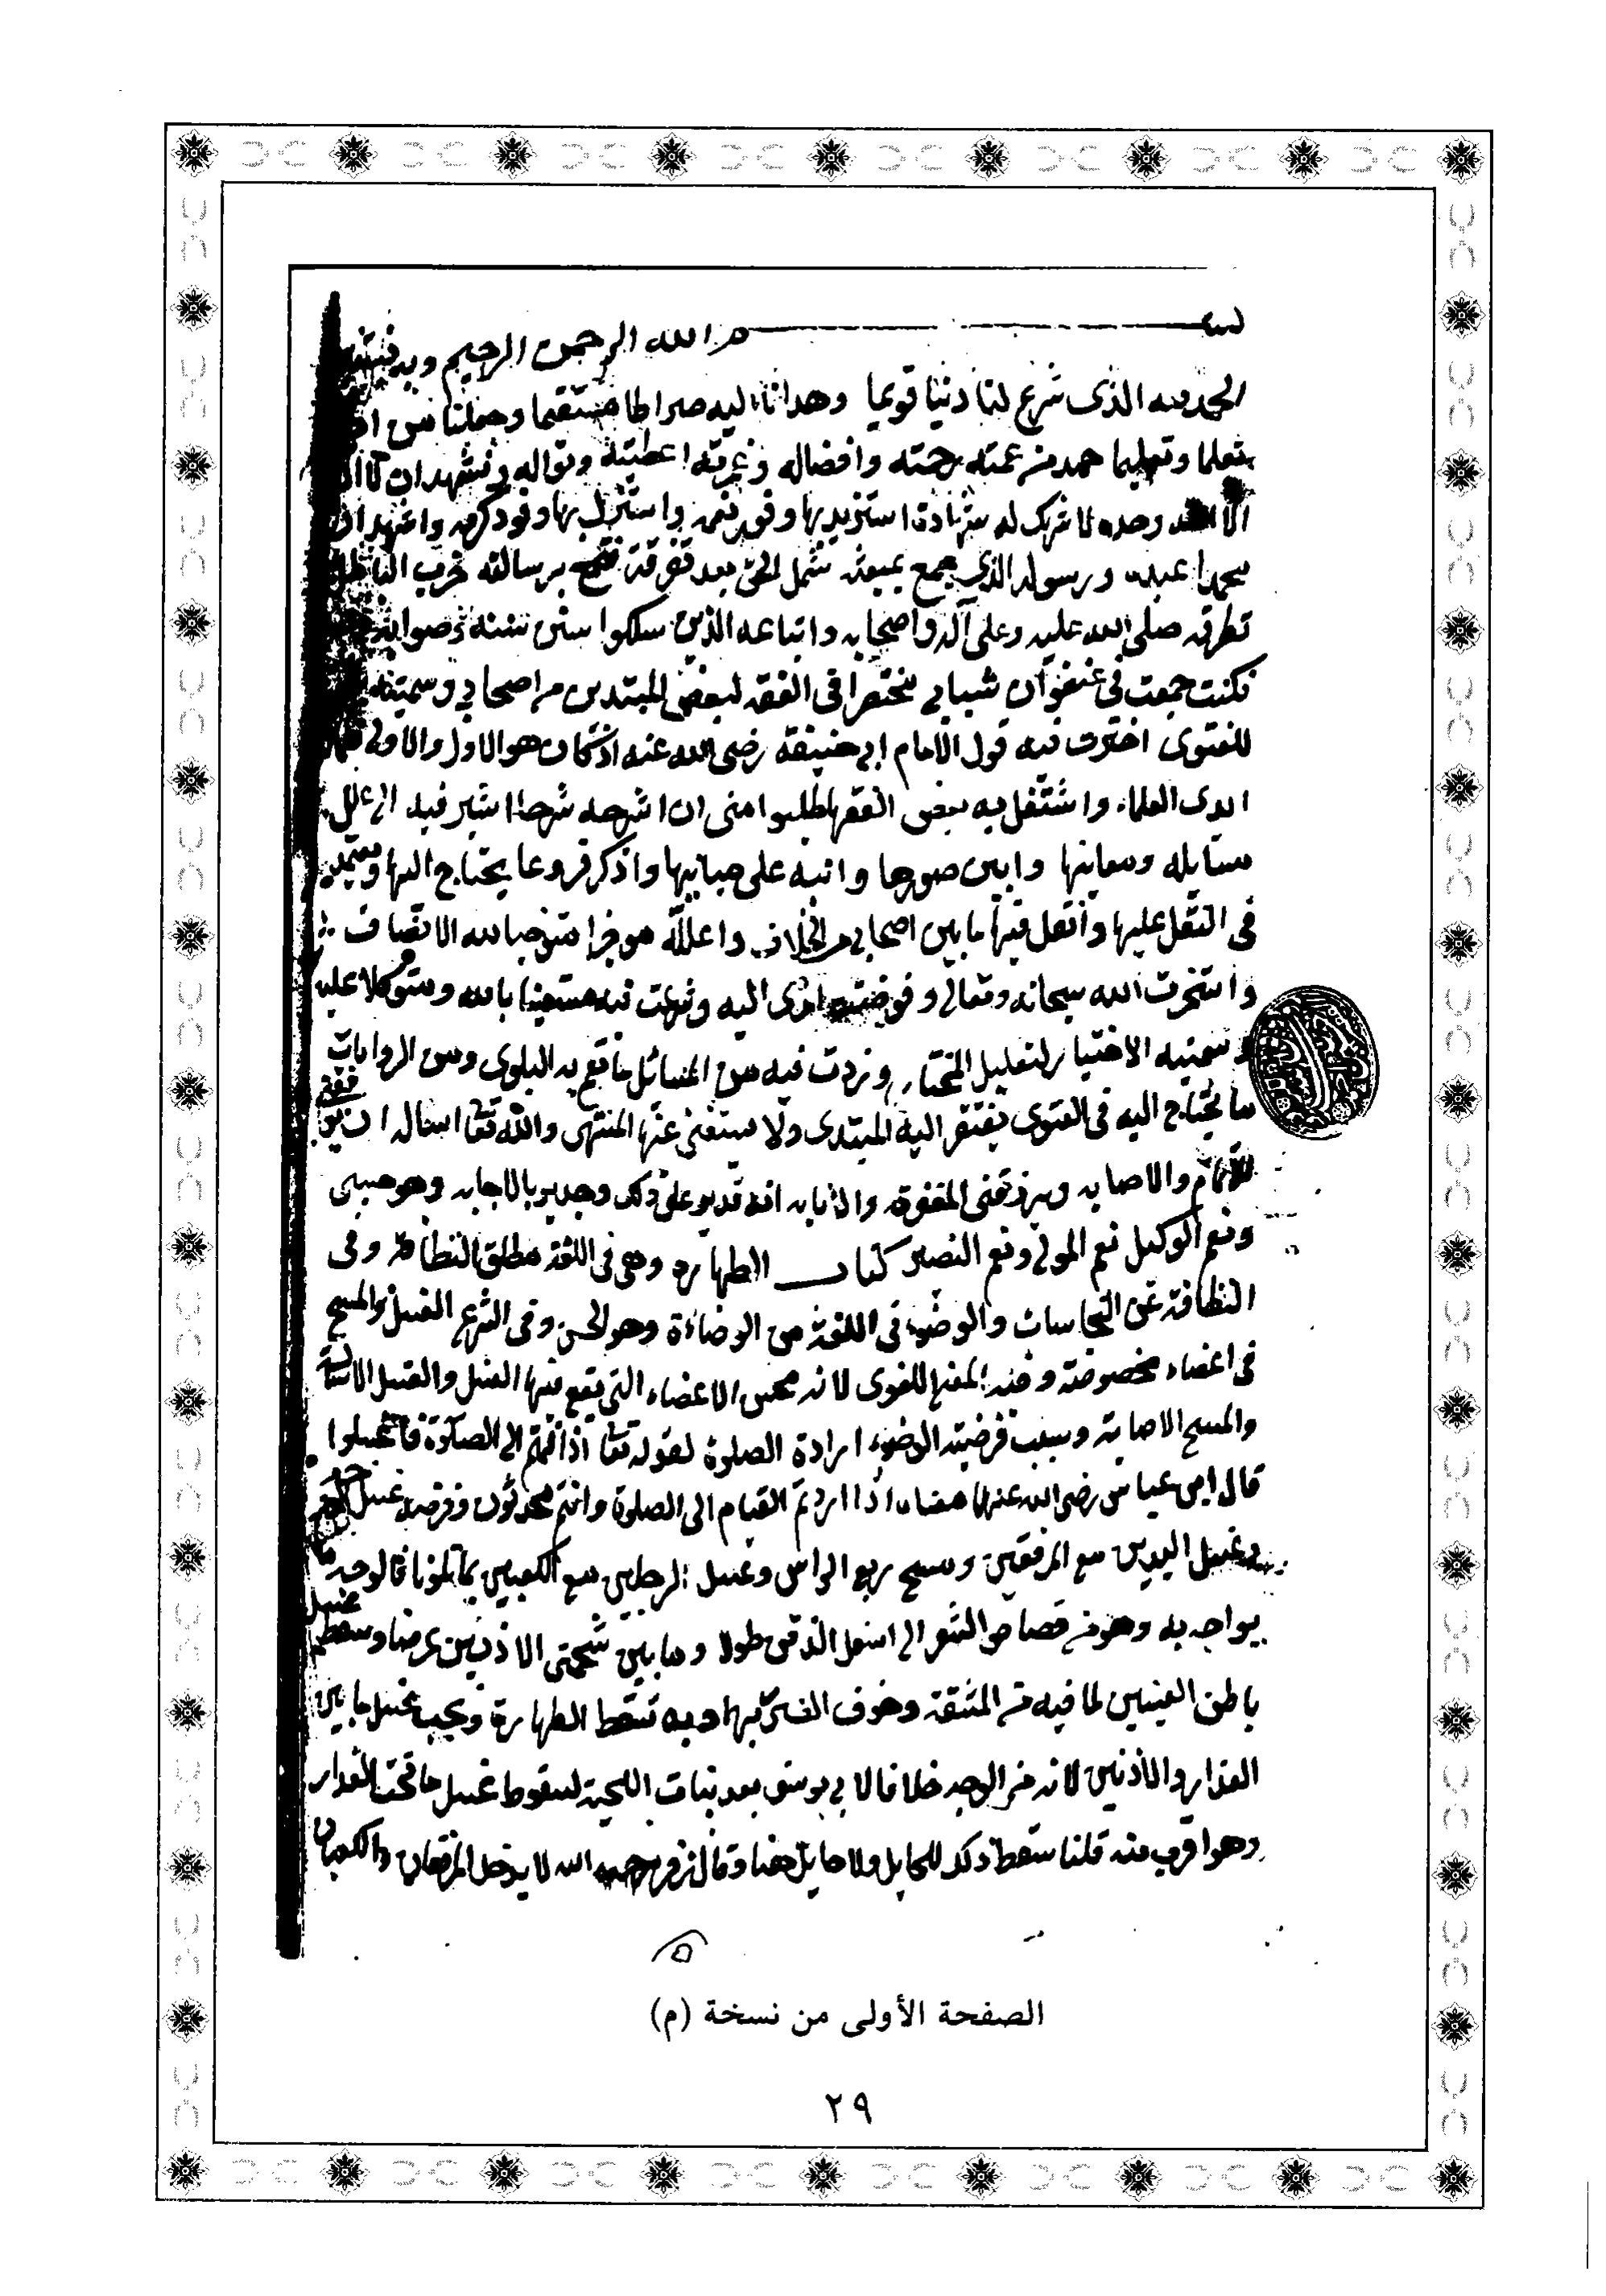 بسم الله الرحمن الرحيم وبه نستعين
الحمد لله الذى شرع لنا دينا قويما وهدانا اليه صراطا مستقيما وجعلنا من
تعلما وتعليما حمد من عمته رحمته وافضاله وغمرته اعطيته ونواله ونشهد ان لا اله
الا الله وحده لا شريك له شهادة استزيد بها وفور نعمه واستنزل بها وفود كرمه واشهد ان
محمدا عبده ورسوله الذي جمع بمبعثه شمل الحق بعد تفرقه برسالته حزب الباطل
تطرقه صلى الله عليه وعلى آله واصحابه واتباعه الذين سلكوا سنن سننه
فكنت جمعت فى عنفوان شبابي مختصرا فى الفقه لبعض المبتدين من اصحابي وسميته
للفتوى اخترت فيه قول الامام ابى حنيفة رضى الله عنه اذ كان هو الاول والاولى
ايدى العلماء واشتغل به بعض الفقهاء طلبوا منى ان اشرحه شرحا اشير فيه الى علل
مسايله ومعانيها وابين صورها وانبه على مبانيها واذكر فروعا يحتاج اليها ويعتمد
فى النقل عليها وانقل فيها ما بين اصحابى من الخلاف واعلله موجزا متوخيا لله الانصاف
واستخرت الله سبحانه وتعالى وفوضت امرى اليه وشرعت فيه مستعينا بالله ومتوكلا عليه
وسميته الاختيار لتعليل المختار وزدت فيه من المسائل ما تعم به البلوى ومن الروايات
ما يحتاج اليه فى الفتوى يفتقر اليه المبتدى ولا يستغنى عنها المنتهى والله تعا اساله ان يوفقنى
للاتمام والاصابه ويرزقنى المغفرة والانابه انه قدير على ذلك وجدير بالاجابه وهو حسبى
ونعم الوكيل نعم المولى ونعم النصير كتاب الطهاره وهى فى اللغة مطلق النظافة وفى
النظافة عن النجاسات والوضوء فى اللغة من الوضاءة وهو الحسن وفى الشرع الغسل والمسح
فى اعضاء مخصوصة وفيه المعنى اللغوى لانه يحسن الاعضاء التى يقع فيها الغسل والغسل الاسالة
والمسح الاصابة وسبب فرضية الوضوء ارادة الصلوة لقوله تعا اذا قمتم الى الصلوة فاغسلوا
قال ابن عباس رضى الله عنهما معناه اذا اردتم القيام الى الصلوة وانتم محدثون وفرضه غسل الوجه
وغسل اليدين مع المرفقين ومسح ربع الراس وغسل الرجلين مع الكعبين بما تلونا فالوجه ما
يواجه به وهو من قصاص الشعر الى اسفل الذقن طولا وما بين شحمتى الاذنين عرضا وسقط غسل
باطن العينين لما فيه من المشقة وخوف الضرر بهما وبه تسقط الطهارة ويجب غسل ما بين
العذار والاذنين لانه من الوجه خلافا لابى يوسف بعد نبات اللحية لسقوط غسل ما تحت العذار
وهو اقرب منه قلنا سقط ذلك للحايل ولا حايل هنا وقال زفر رحمه الله لا يدخل المرفقان والكعبان
الصفحة الأولى من نسخة (م)
٢٩